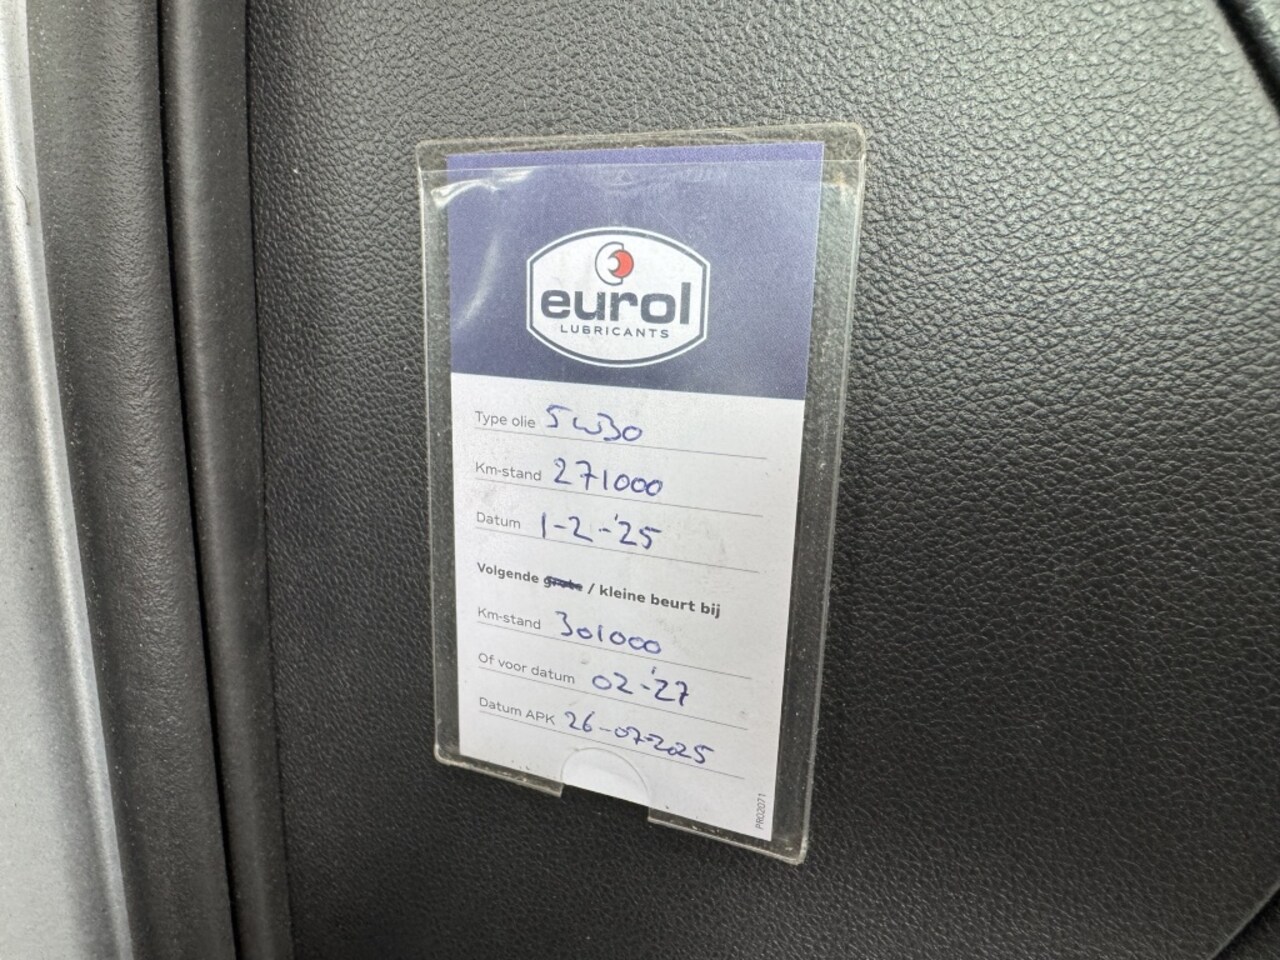 eurol
LUBRICANTS
Type olie 5w30
Km-stand 271000
Datum 1-2-'25
Volgende grote / kleine beurt bij
Km-stand 301000
Of voor datum 02-'27
Datum APK 26-07-2025
PR02071